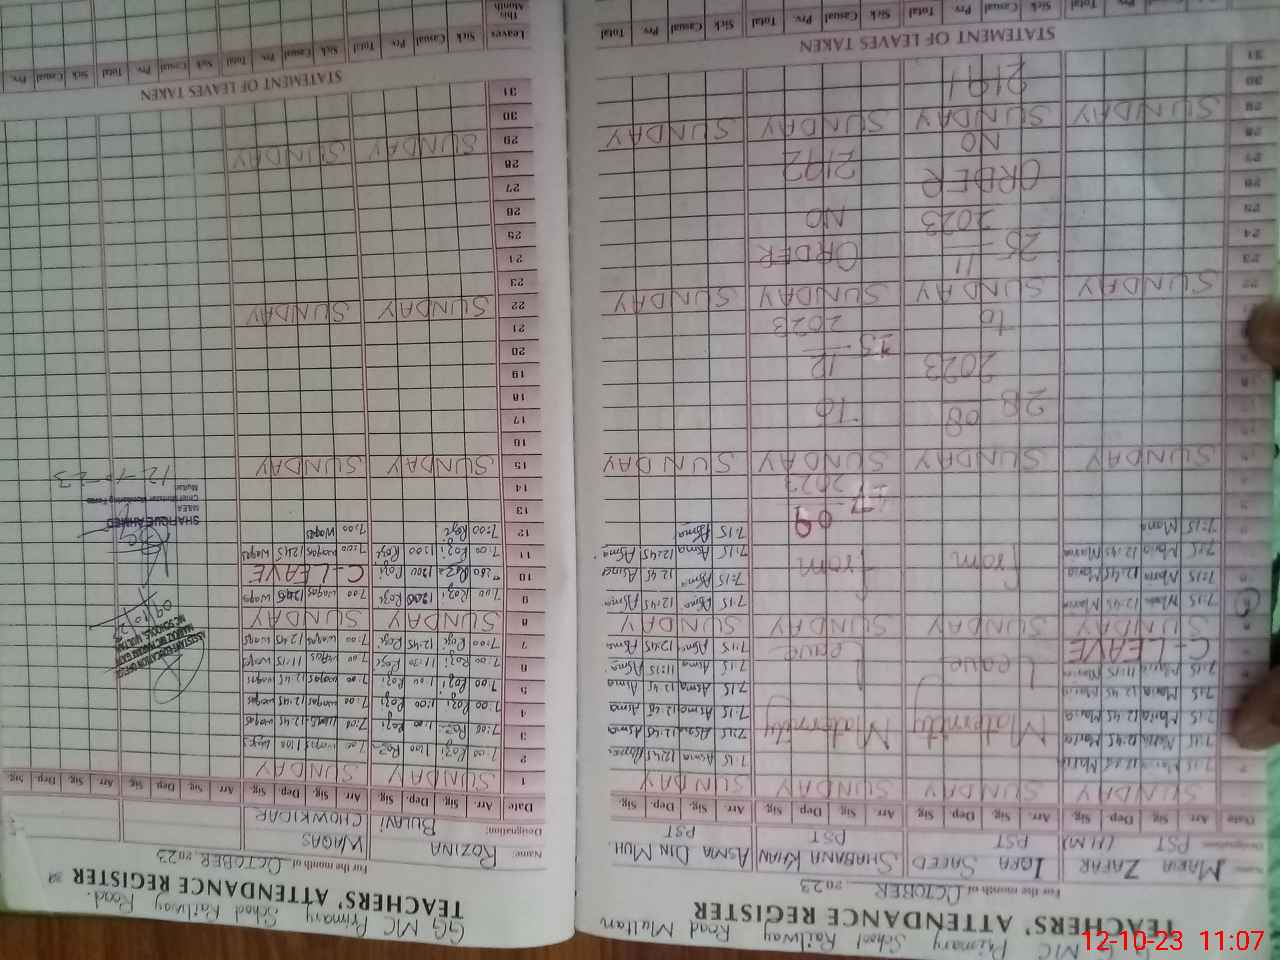 MC Primary School Railway Road Multan
TEACHERS' ATTENDANCE REGISTER
For the month of OCTOBER 2023
Name: MARIA ZAFAR IQRA SAEED SHABANA KHAN ASMA DIN MUH.
Designation: PST (H.M) PST PST PST
Date Arr. Sig. Dep. Sig. Arr. Sig. Dep. Sig. Arr. Sig. Dep. Sig. Arr. Sig. Dep. Sig.
SUNDAY SUNDAY
7:15 Maria 12:45 Maria 7:15 Asma 12:45 Asma
7:15 Maria 12:45 Maria Maternity Maternity 7:15 Asma 12:45 Asma
7:15 Maria 12:45 Maria 7:15 Asma 12:45 Asma
7:15 Maria 12:45 Maria Leave Leave 7:15 Asma 12:45 Asma
7:15 Maria 11:15 Maria 7:15 Asma 11:15 Asma
C-LEAVE 7:15 Asma 12:45 Asma
SUNDAY SUNDAY SUNDAY SUNDAY
7:15 Maria 12:45 Maria 7:15 Asma 12:45 Asma
7:15 Maria 12:45 Maria from from 7:15 Asma 12:45 Asma
7:15 Maria 12:45 Maria 7:15 Asma 12:45 Asma
7:15 Maria 7:15 Asma
17-09
2023
SUNDAY SUNDAY SUNDAY SUNDAY
28-08 To
2023 12
to 2023
SUNDAY SUNDAY SUNDAY SUNDAY
25-11 ORDER
2023 NO
ORDER 2192
NO
SUNDAY SUNDAY SUNDAY SUNDAY
2191
31
STATEMENT OF LEAVES TAKEN
Sick Casual Prv. Total Sick Casual Prv. Total Sick Casual Prv. Total
GG MC Primary School Railway Road.
TEACHERS' ATTENDANCE REGISTER
For the month of OCTOBER 2023
Name: ROZINA WAQAS
Designation: BULAVI CHOWKIDAR
Date Arr. Sig. Dep. Sig. Arr. Sig. Dep. Sig. Arr. Sig. Dep. Sig. Arr. Sig. Dep. Sig.
1 SUNDAY SUNDAY
2 7:00 Rozi 1:00 Rozi 7:00 waqas 1:00 waqas
3 7:00 Rozi 1:00 Rozi 7:00 waqas 12:45 waqas
4 7:00 Rozi 1:00 Rozi 7:00 waqas 12:45 waqas
5 7:00 Rozi 1:00 Rozi 7:00 waqas 12:45 waqas
6 7:00 Rozi 11:30 Rozi 7:00 waqas 11:15 waqas
7 7:00 Rozi 12:45 Rozi 7:00 waqas 12:45 waqas
8 SUNDAY SUNDAY
9 7:00 Rozi 1:00 Rozi 7:00 waqas waqas
10 7:00 Rozi 1:00 Rozi C-LEAVE
11 7:00 Rozi 1:00 Rozi 7:00 waqas 12:45 waqas
12 7:00 Rozi 7:00 waqas
13
14
15 SUNDAY SUNDAY
16
17
18
19
20
21
22 SUNDAY SUNDAY
23
24
25
26
27
28
29 SUNDAY SUNDAY
30
31
ASSISTANT EDUCATION OFFICER
MC SCHOOLS, MULTAN
SHAFIQUE AHMED
MEA
Chief Minister Monitoring Force
Multan
STATEMENT OF LEAVES TAKEN
Leaves Sick Casual Prv. Total Sick Casual Prv. Total Sick Casual Prv. Total Sick Casual Prv.
This Month
12-10-23 11:07